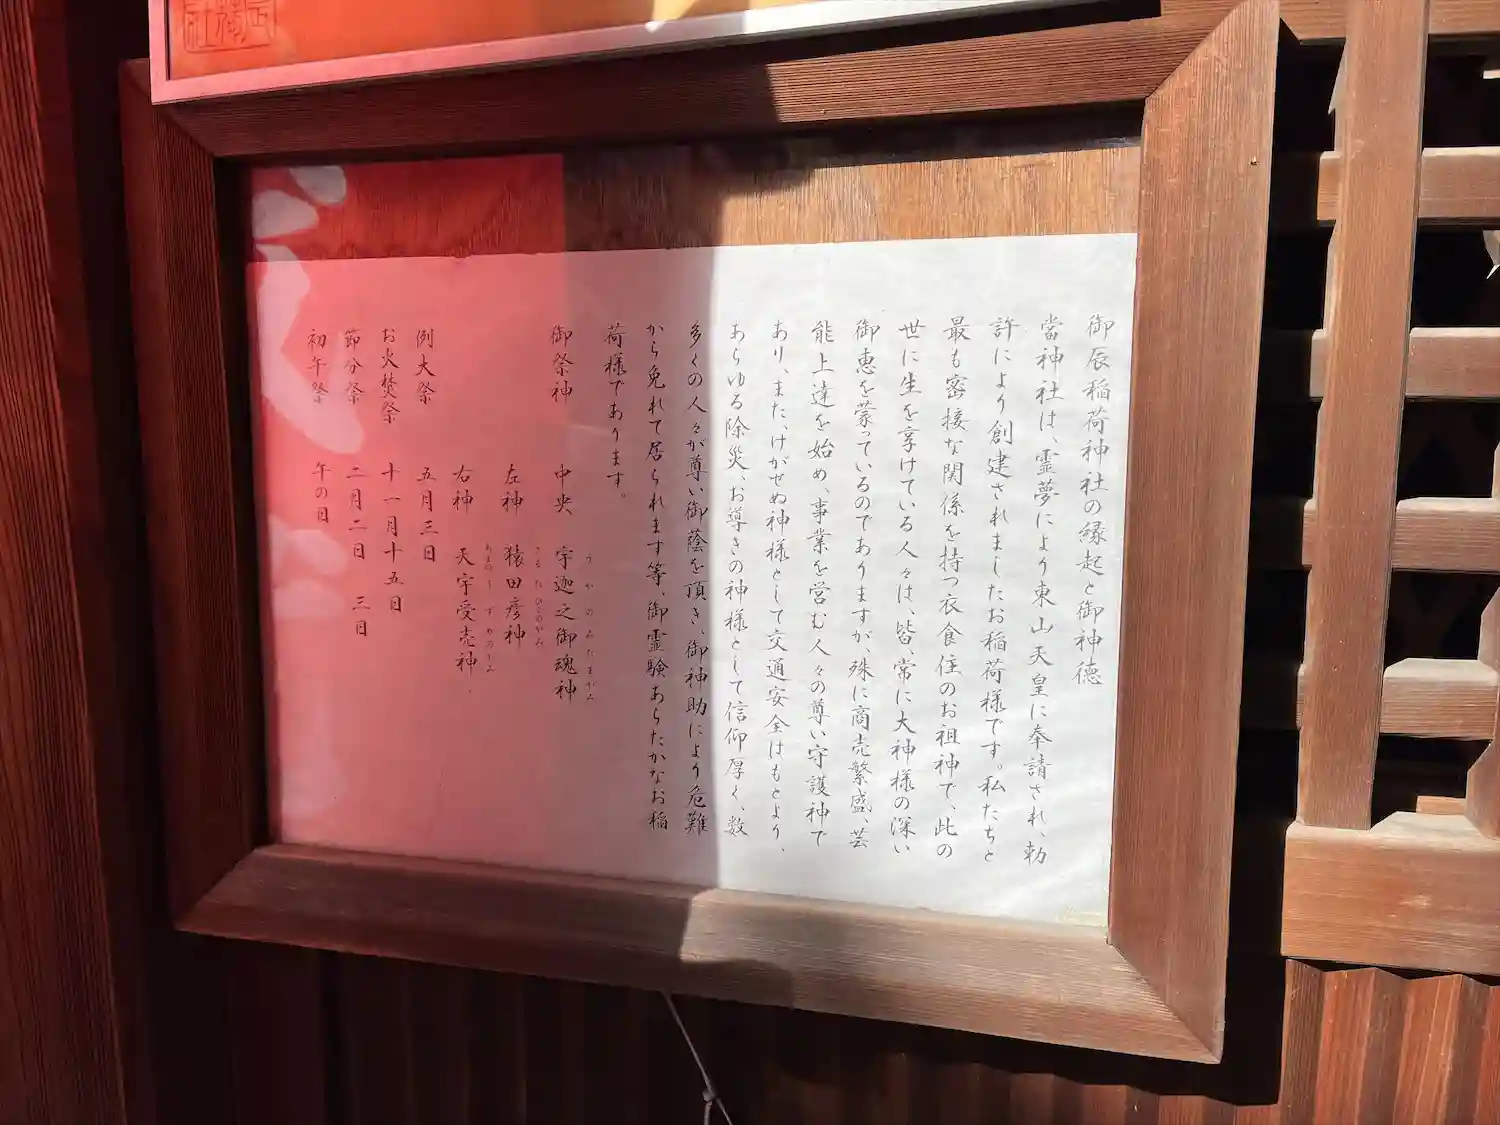 御辰稲荷神社の縁起と御神徳
當神社は、霊夢により東山天皇に奉請され、勅
許により創建されましたお稲荷様です。私たちと
最も密接な関係を持つ衣食住のお祖神で、此の
世に生を享けている人々は、皆、常に大神様の深い
御恵を蒙っているのでありますが、殊に商売繁盛、芸
能上達を始め、事業を営む人々の尊い守護神で
あり、また、けがせぬ神様として交通安全はもとより、
あらゆる除災、お導きの神様として信仰厚く、数
多くの人々が尊い御蔭を頂き、御神助により危難
から免れて居られます等、御霊験あらたかなお稲
荷様であります。
御祭神 中央 宇迦之御魂神
うかのみたまかみ
左神 猿田彦神
さるたひこのかみ
右神 天宇受売神
例大祭 五月三日
お火焚祭 十一月十五日
節分祭 二月二日 三日
初午祭 午の日